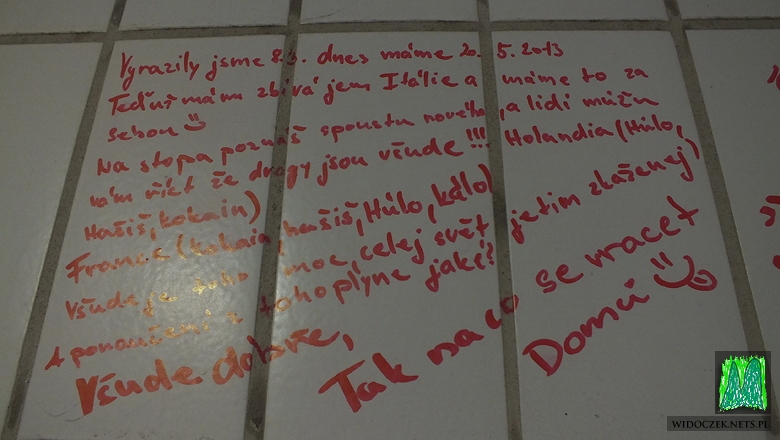 Vyrazily jsme 8.3. dnes máme 20. 5. 2013
Teďuž mám zbývá jem Itálie a máme to za
sebou
Na stopa poznáš spoustu nového, a lidí můžu
vám říct že drogy jsou všude!!! Holandia (Húlo,
Hašiš, kokain)
France (kokain, hašiš, Húlo, kólo)
Všude je toho moc, celej svět jetim zkaženej)
A ponaučení z toho plyne jaké?
Všude dobře,
Tak na co se vracet
Domů
WIDOCZEK.NETS.PL